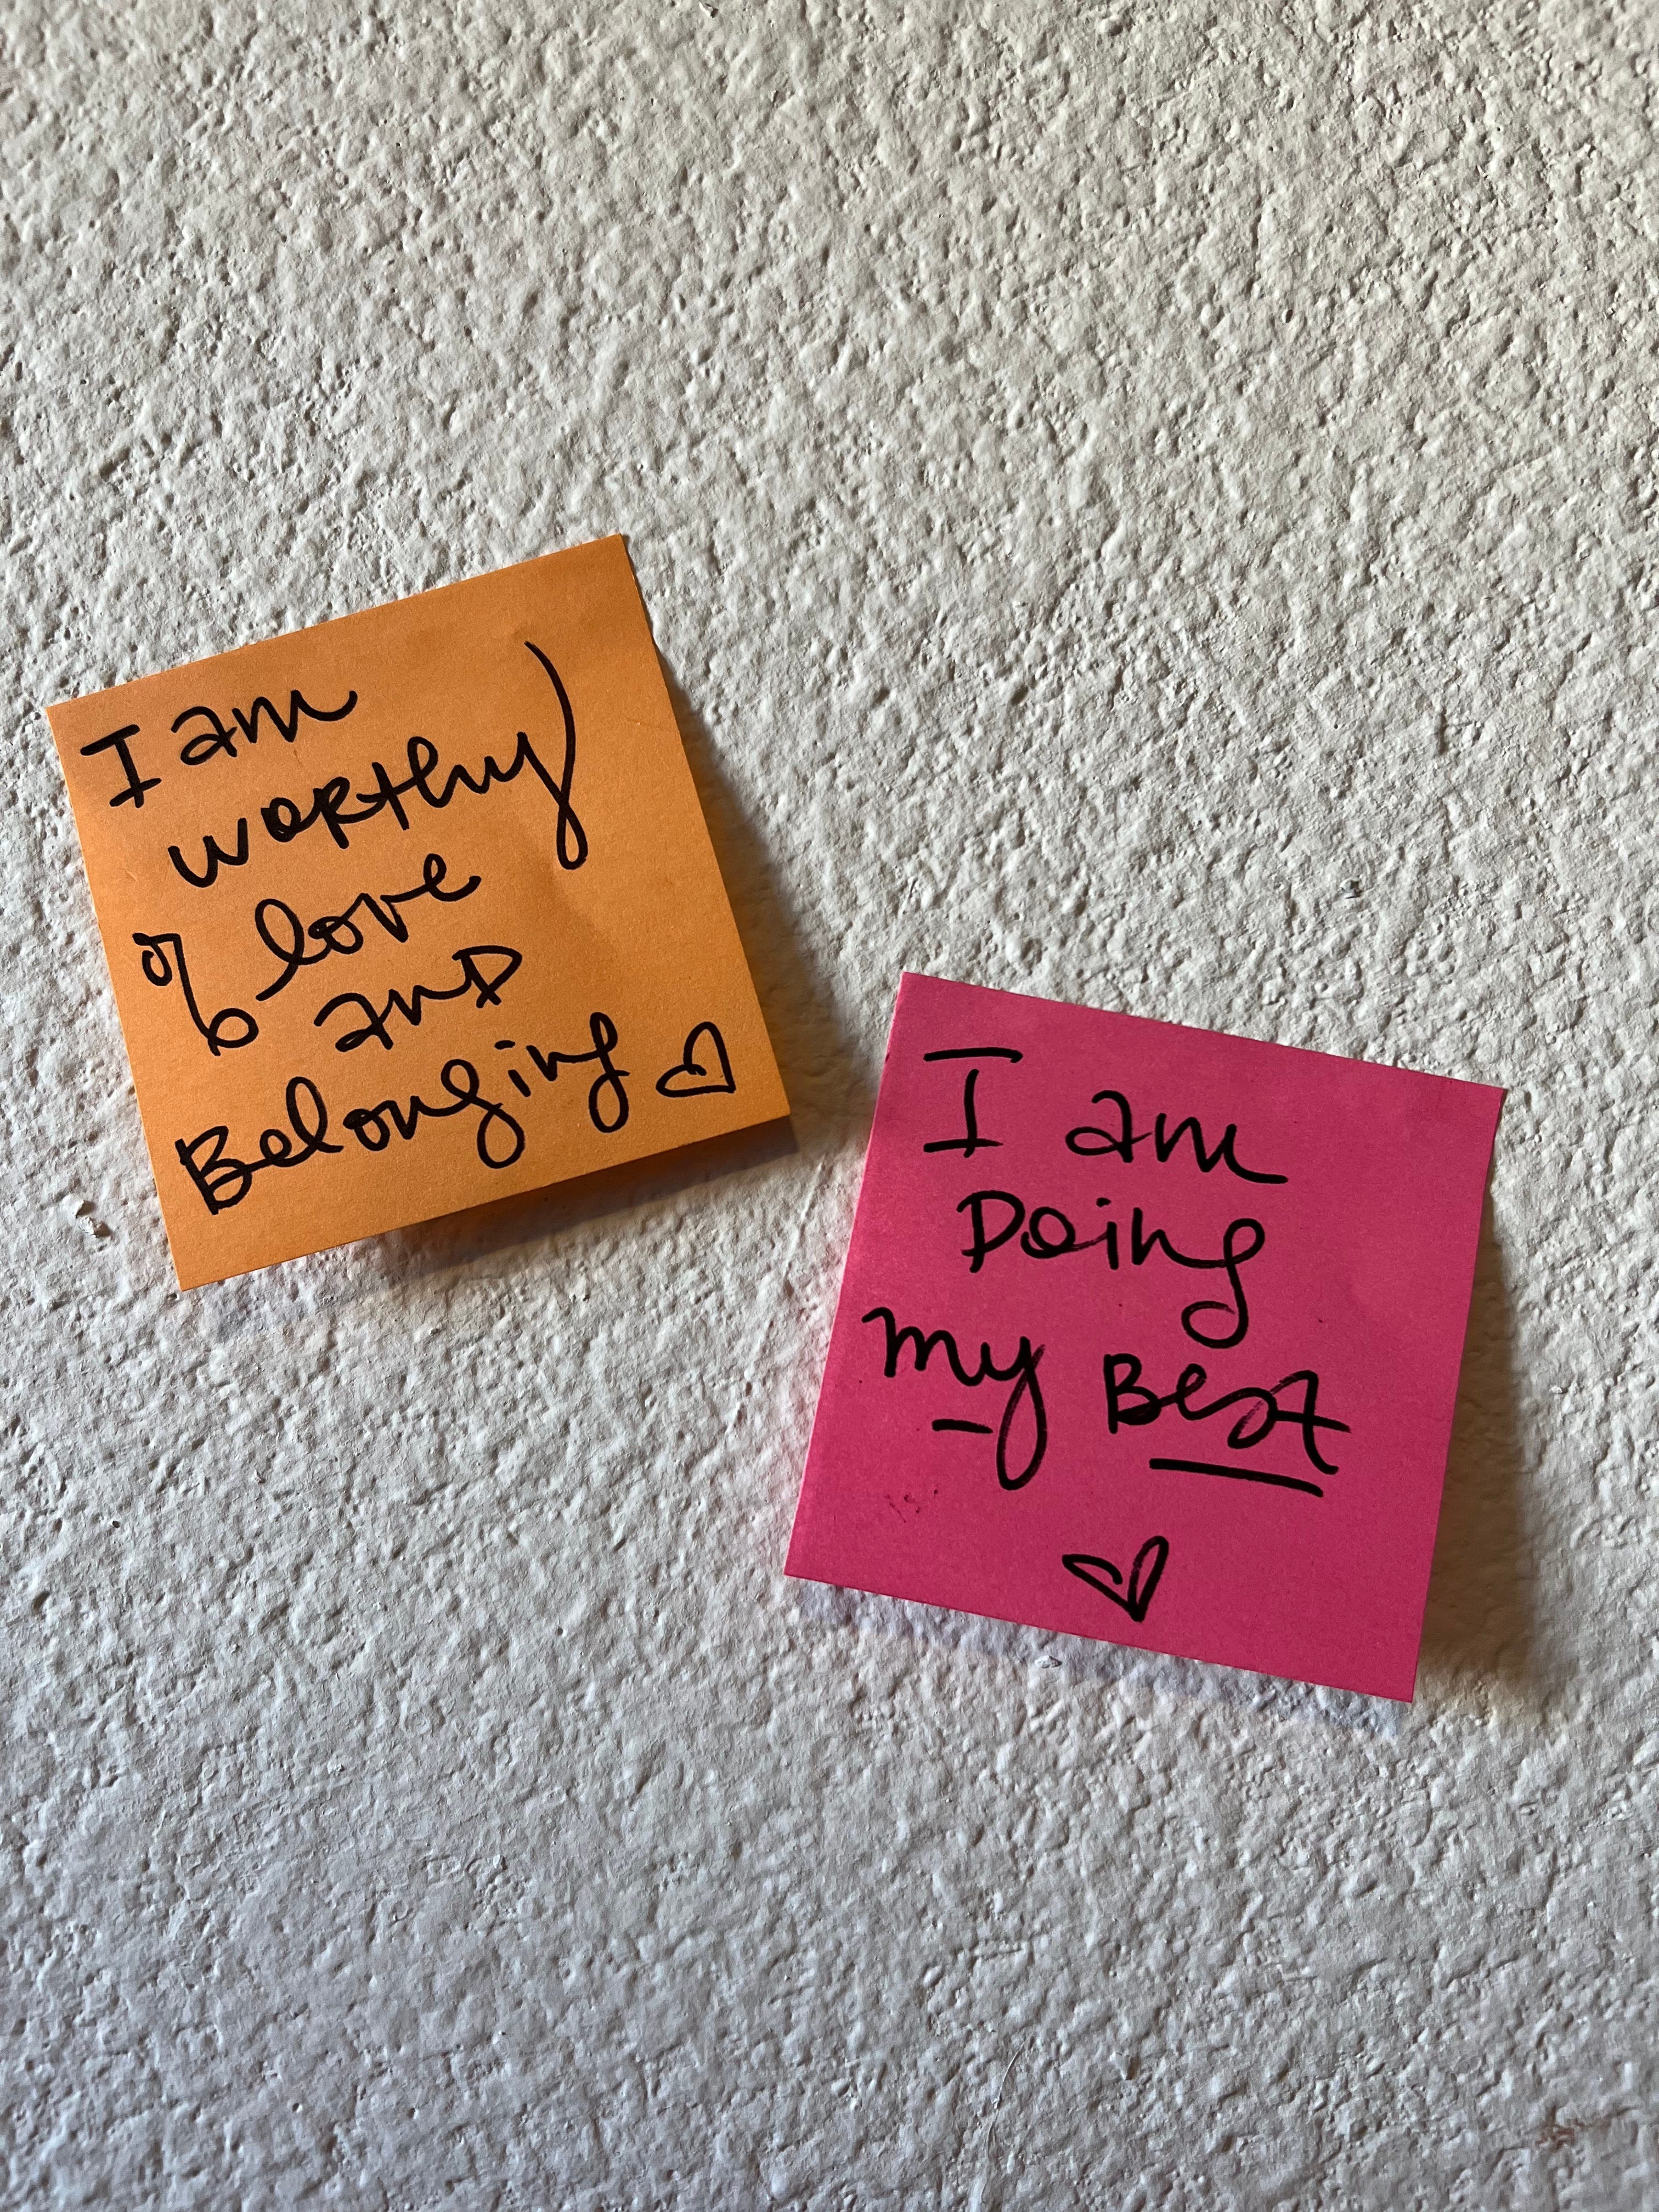 I am
worthy
of love
and
Belonging
I am
Doing
my Best